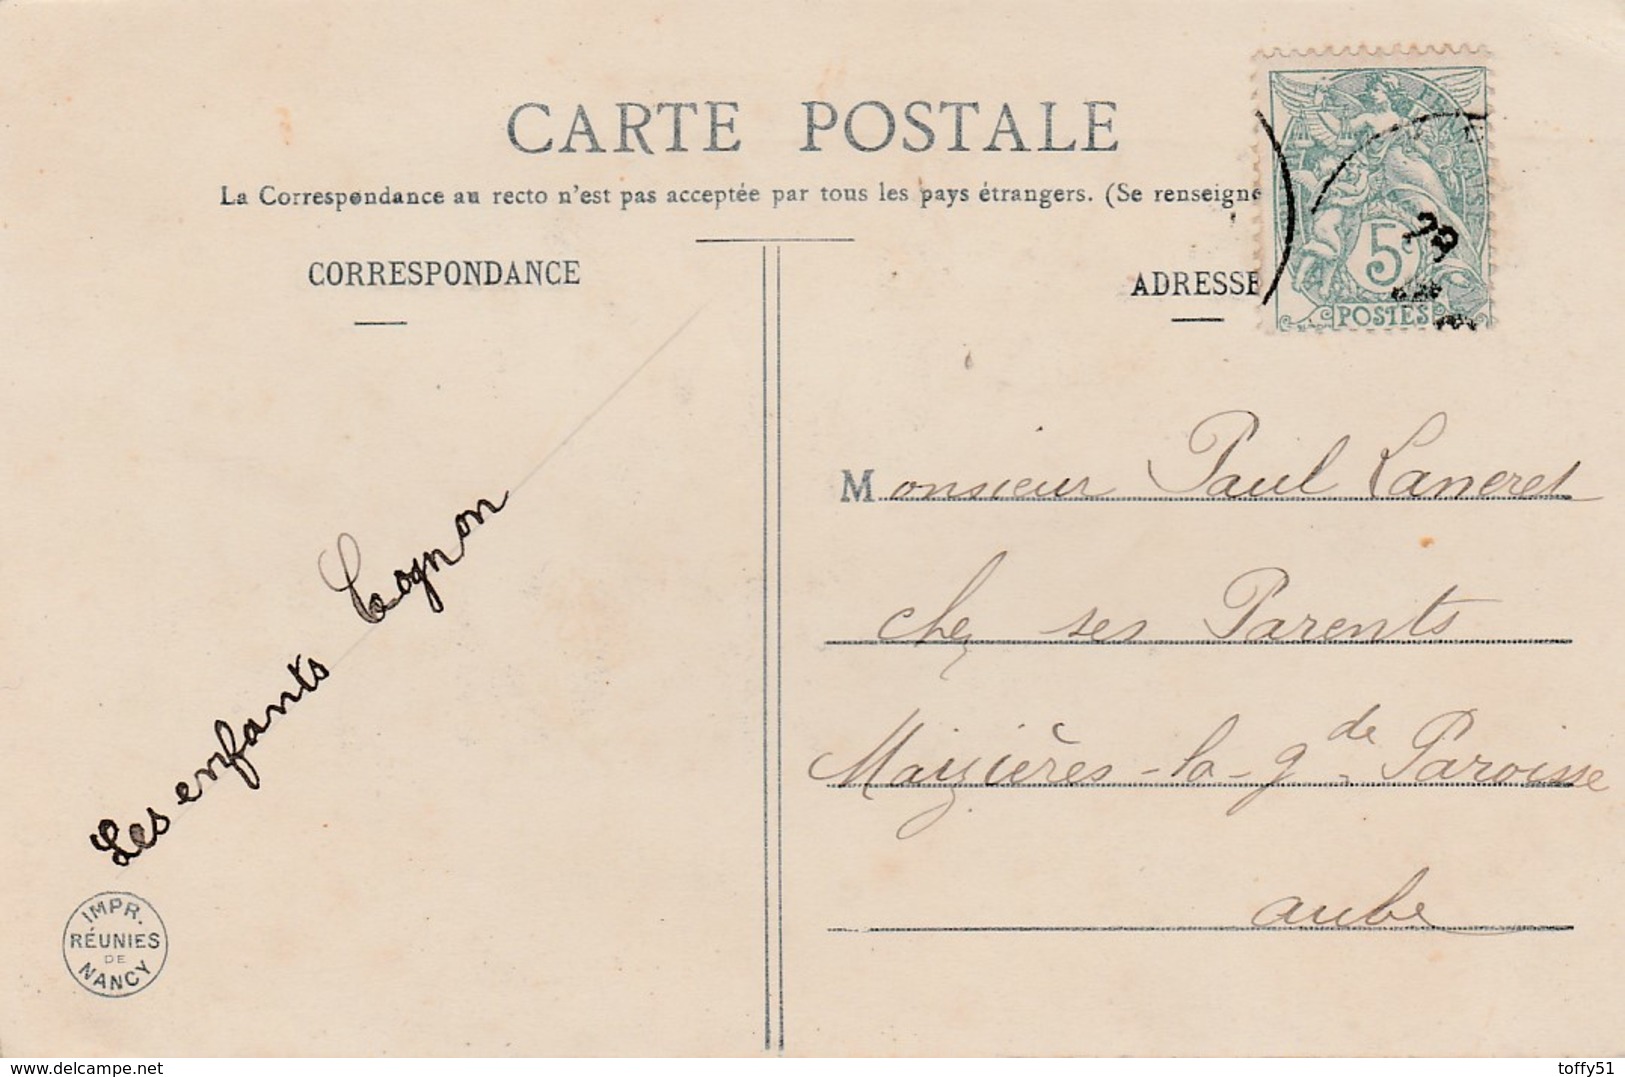 CARTE POSTALE
La Correspondance au recto n'est pas acceptée par tous les pays étrangers. (Se renseigne
CORRESPONDANCE
ADRESSE
FRANÇAISE
5c
POSTES
Monsieur Paul Laneret
chez ses Parents
Maizières-la-gde Paroisse
aube
Les enfants Cognon
IMPR.
RÉUNIES
DE
NANCY
www.delcampe.net
toffy51